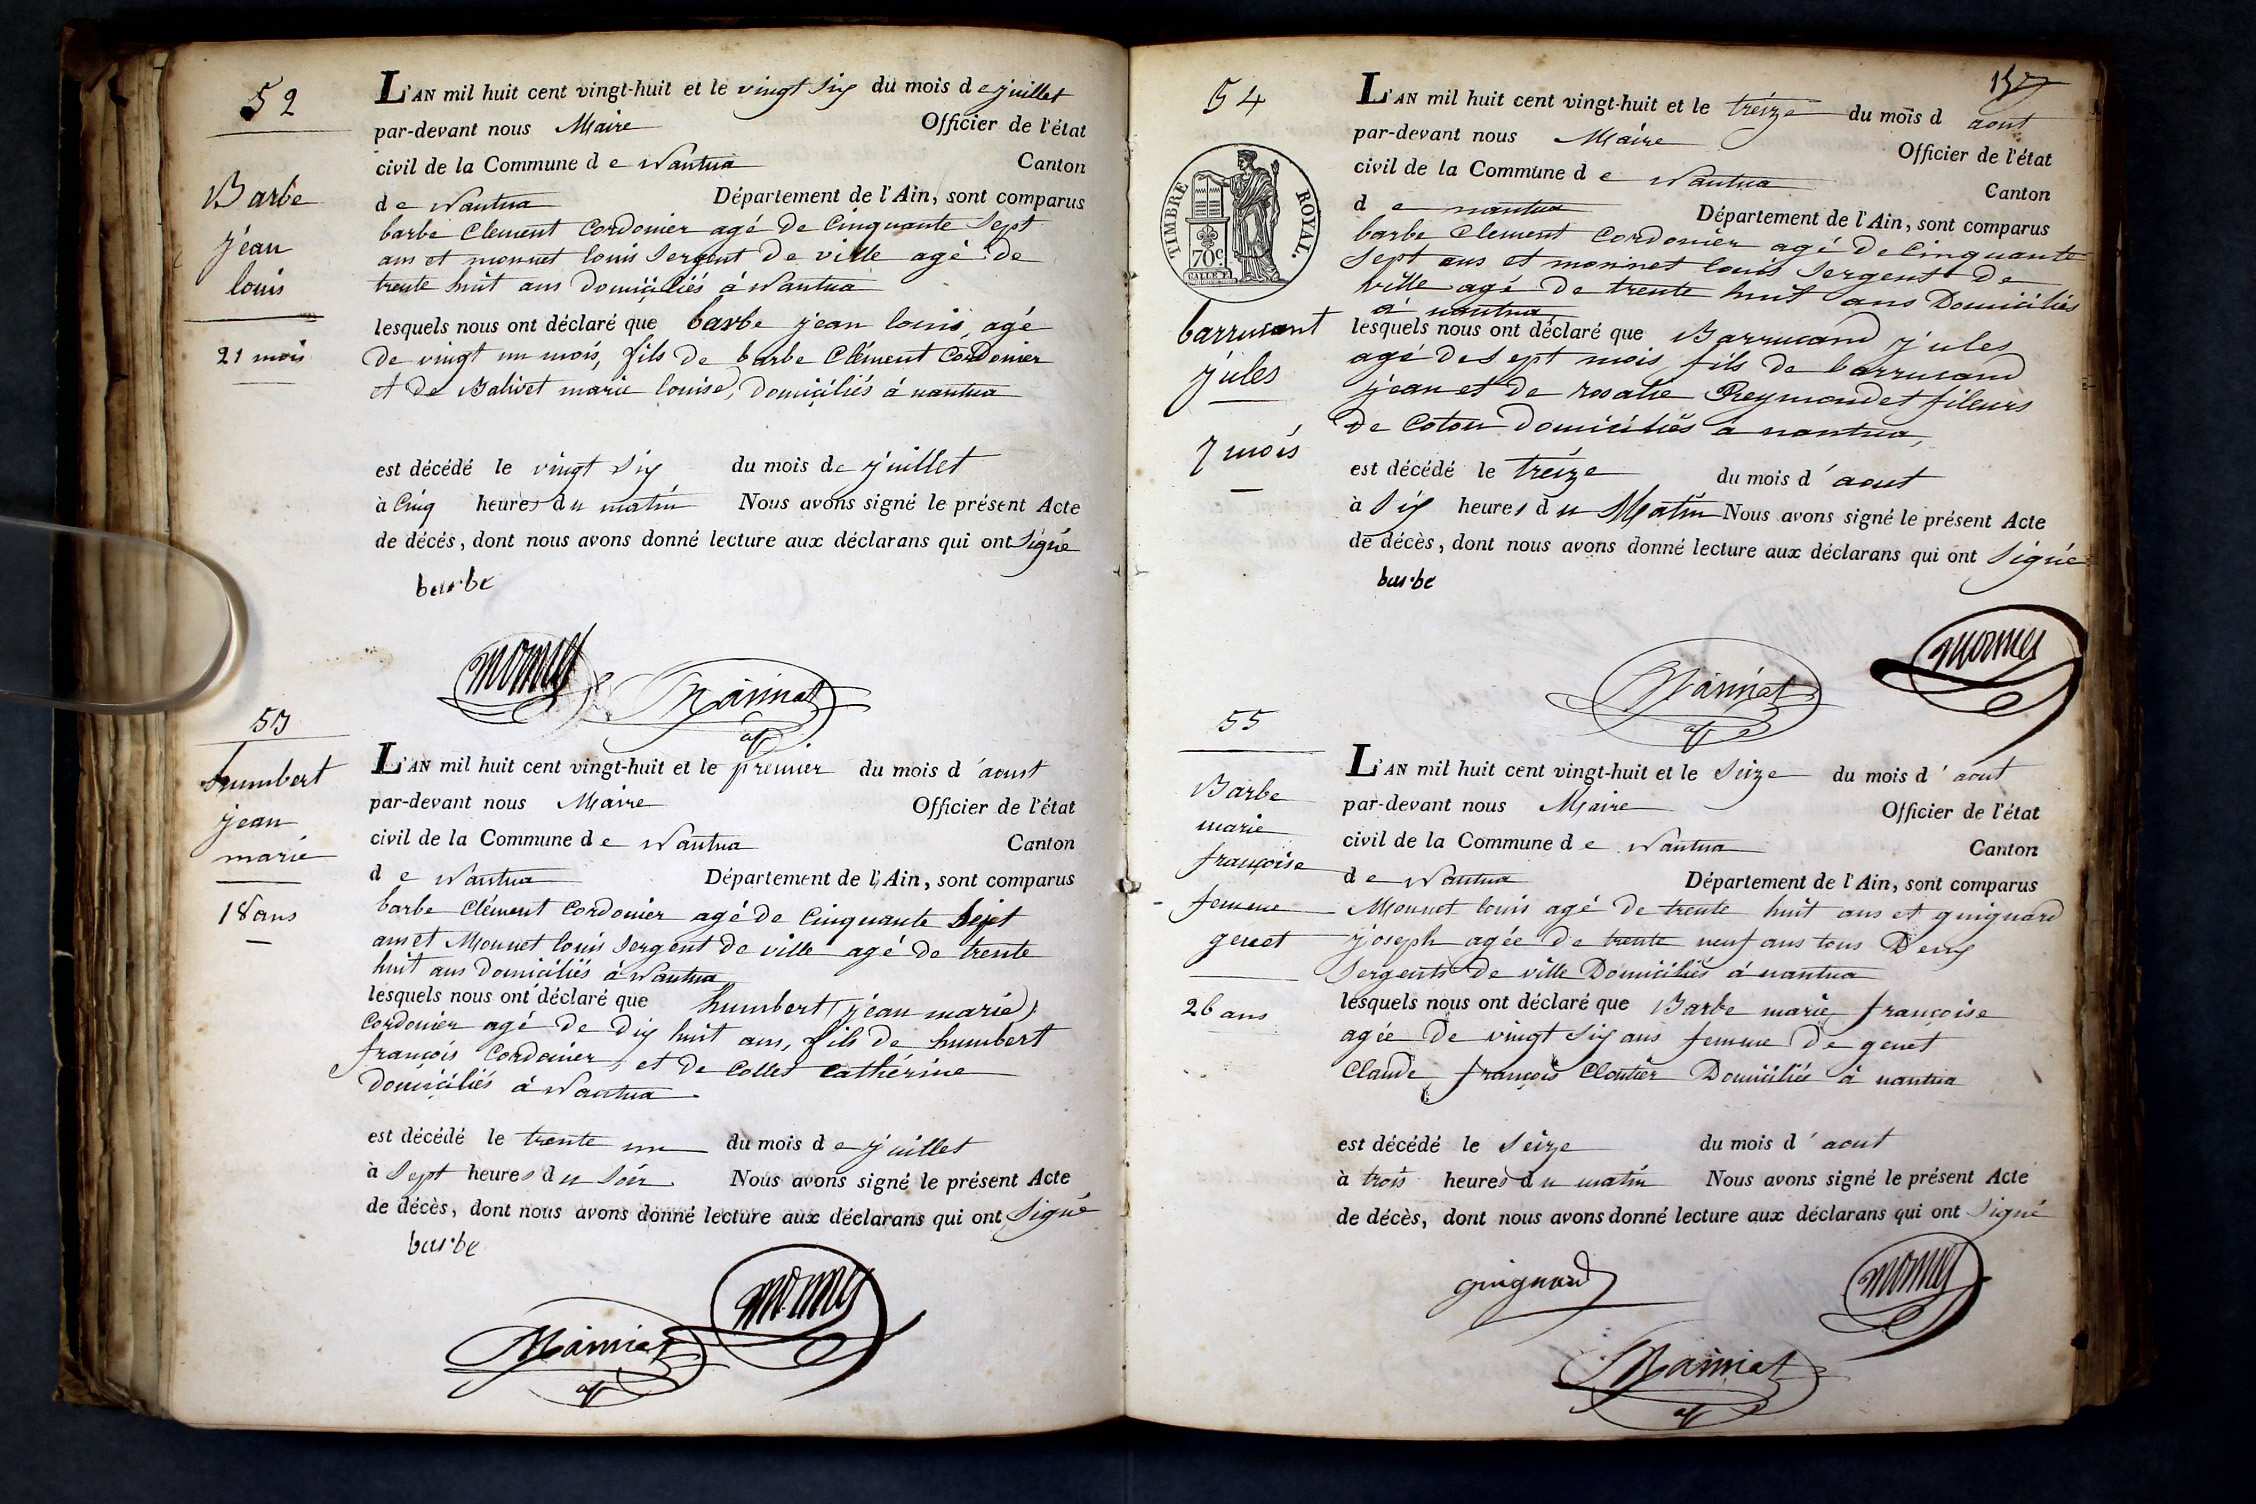 52
Barbe
jean
louis
21 mois
L'AN mil huit cent vingt-huit et le vingt six du mois de juillet
par-devant nous Maire Officier de l'état
civil de la Commune de Nantua Canton
de Nantua Département de l'Ain, sont comparus
barbe Clement Cordonier agé de Cinquante Sept
ans et monnet louis Sergent de ville agé de
trente huit ans Domiciliés à Nantua
lesquels nous ont déclaré que barbe jean louis, agé
de vingt un mois, fils de barbe Clément Cordonier
et de Balivet marie louise, Domiciliés à nantua
est décédé le vingt six du mois de juillet
à Cinq heures du matin Nous avons signé le présent Acte
de décés, dont nous avons donné lecture aux déclarans qui ont Signé
barbe
monnet
53
humbert
jean
marie
18 ans
L'AN mil huit cent vingt-huit et le premier du mois d'aout
par-devant nous Maire Officier de l'état
civil de la Commune de Nantua Canton
de Nantua Département de l'Ain, sont comparus
barbe Clément Cordonier agé de Cinquante Sept
ans et Monnet louis Sergent de ville agé de trente
huit ans Domiciliés à Nantua
lesquels nous ont déclaré que humbert (jean marie)
Cordonier agé de Dix huit ans, fils de humbert
françois Cordonier, et de Collet Cathérine
Domiciliés à Nantua
est décédé le trente un du mois de juillet
à Sept heures du Soir Nous avons signé le présent Acte
de décès, dont nous avons donné lecture aux déclarans qui ont Signé
barbe
monnet
54
TIMBRE ROYAL.
70c.
barrucant
jules
7 mois
L'AN mil huit cent vingt-huit et le treize du mois d aout
par-devant nous Maire Officier de l'état
civil de la Commune de Nantua Canton
de nantua Département de l'Ain, sont comparus
barbe Clement Cordonier agé de Cinquante
Sept ans et monnet louis Sergent de
ville agé de trente huit ans Domiciliés
à nantua
lesquels nous ont déclaré que Barrucand jules
agé de Sept mois fils de barrucand
jean et de rosalie Reymondet fileurs
de Coton Domiciliés à nantua,
est décédé le treize du mois d'aout
à Six heures du Matin Nous avons signé le présent Acte
de décès, dont nous avons donné lecture aux déclarans qui ont Signé
barbe
monnet
55
Barbe
marie
françoise
femme
genet
26 ans
L'AN mil huit cent vingt-huit et le Seize du mois d'aout
par-devant nous Maire Officier de l'état
civil de la Commune de Nantua Canton
de Nantua Département de l'Ain, sont comparus
Monnet louis agé de trente huit ans et guignard
joseph agée de trente neuf ans tous Deux
Sergents de ville Domiciliés à nantua
lesquels nous ont déclaré que Barbe marie françoise
agée de vingt Six ans femme de genet
Claude françois Cloutier Domiciliée à nantua
est décédé le Seize du mois d'aout
à trois heures du matin Nous avons signé le présent Acte
de décès, dont nous avons donné lecture aux déclarans qui ont Signé
guignard
monnet